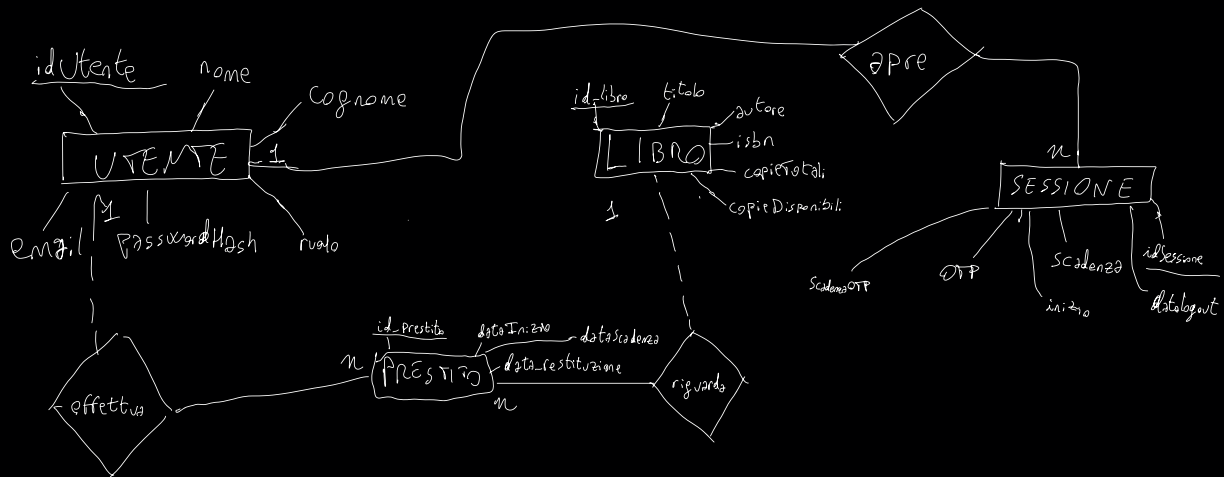 idUtente
nome
cognome
UTENTE
1
1
email
passwordHash
ruolo
apre
id_libro
titolo
autore
isbn
LIBRO
copieTotali
copieDisponibili
1
n
SESSIONE
scadenzaOTP
OTP
inizio
scadenza
idSessione
datalogout
effettua
n
id_prestito
dataInizio
dataScadenza
data_restituzione
PRESTITO
n
riguarda